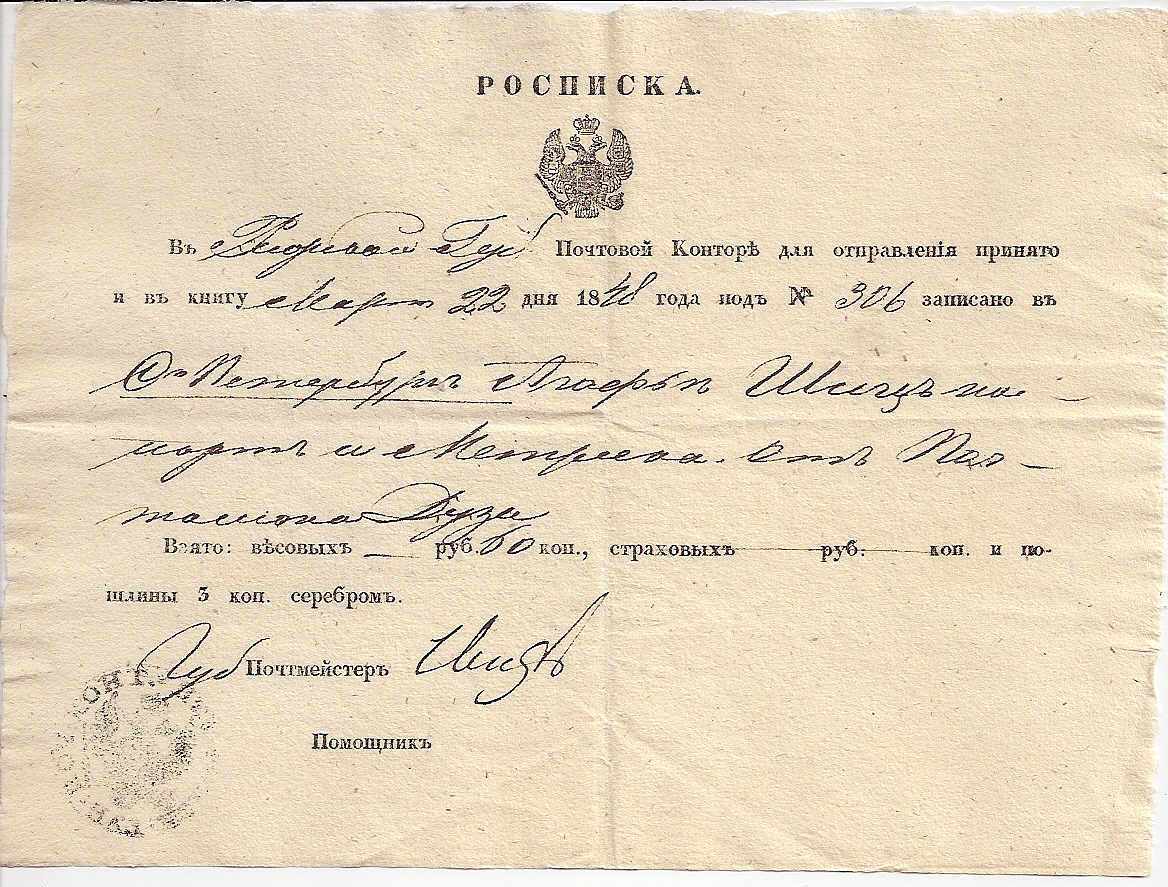 РОСПИСКА.
Въ Губ Почтовой Конторѣ для отправленія принято
и въ книгу Март 22 дня 1848 года подъ № 306 записано въ
С Петербургъ Агафьѣ Шицъ пас-
портъ и Метреека. Отъ
Взято: вѣсовыхъ — руб. 60 коп., страховыхъ — руб. — коп. и по-
шлины 3 коп. серебромъ.
Губ Почтмейстеръ
Помощникъ